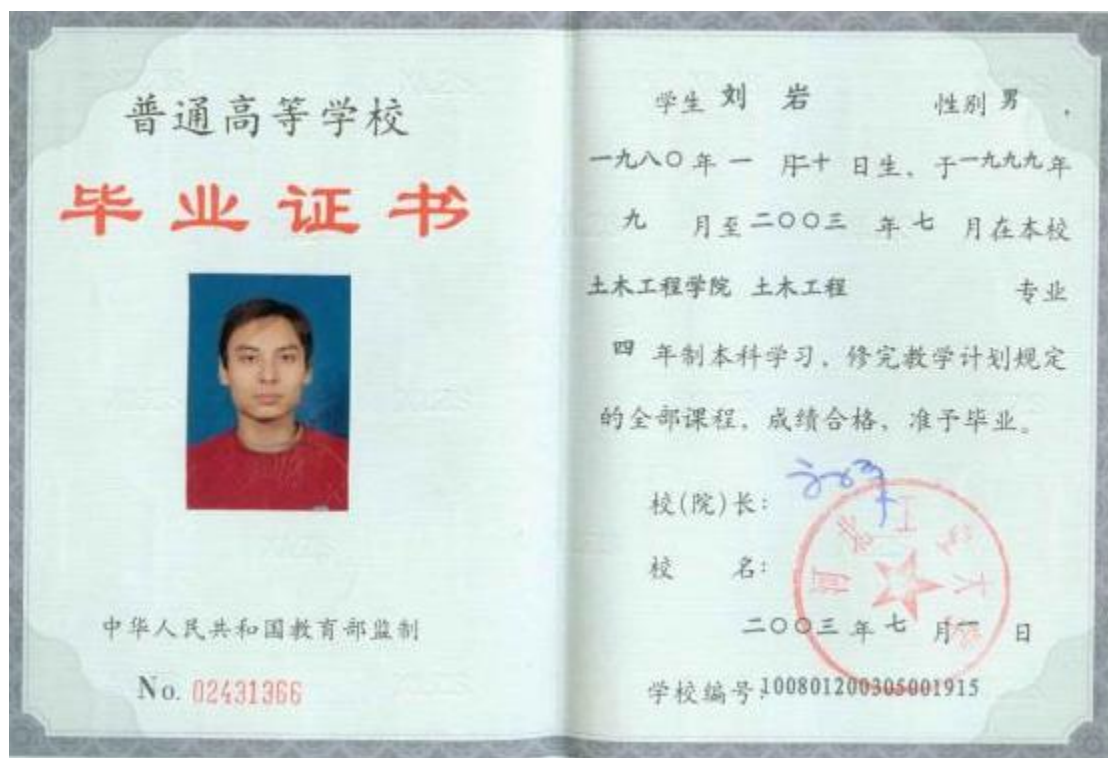 普通高等学校
毕业证书
中华人民共和国教育部监制
No. 02431366
学生 刘 岩 性别 男 ,
一九八〇 年 一 月二十 日生, 于一九九九 年
九 月至 二〇〇三 年 七 月在本校
土木工程学院 土木工程 专业
四 年制本科学习, 修完教学计划规定
的全部课程, 成绩合格, 准予毕业。
校(院)长:
校 名:
河北工业大学
二〇〇三 年 七 月一 日
学校编号:100801200305001915